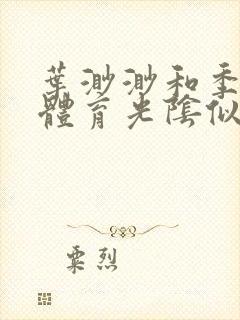 葉渺渺和季
體育光陰似
粟烈